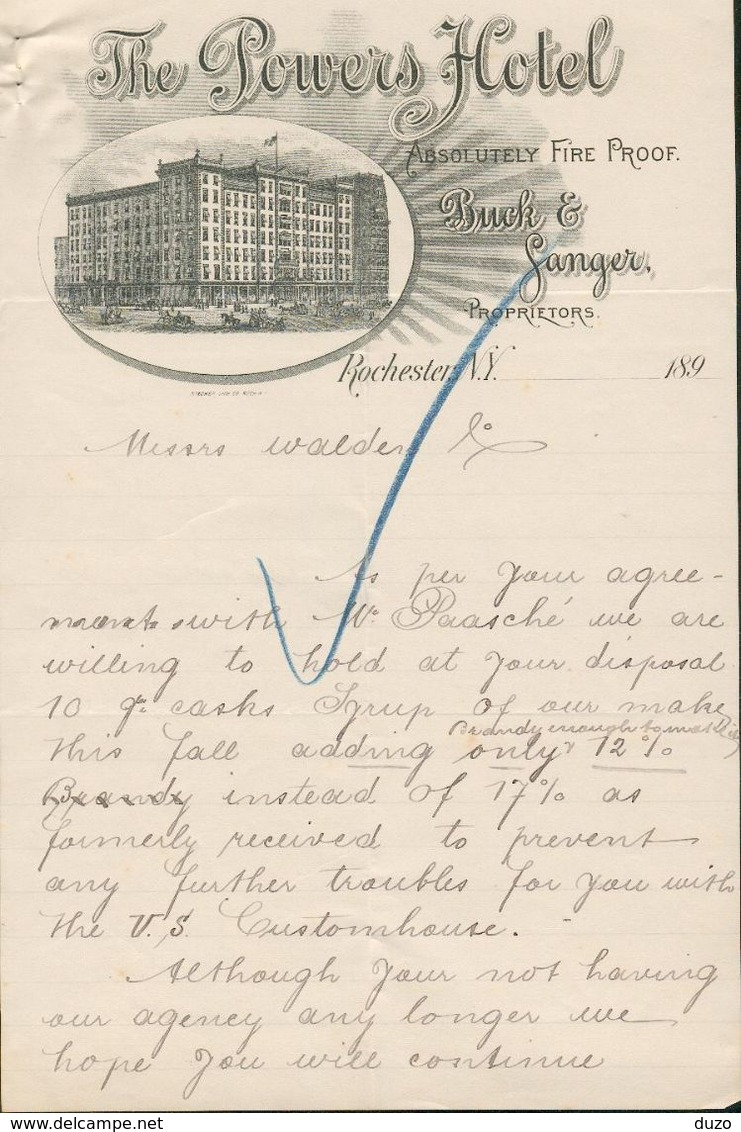 The Powers Hotel
ABSOLUTELY FIRE PROOF.
Buck &
Sanger,
PROPRIETORS.
Rochester, N.Y. 189
Messrs Walden & Co
As per your agree-
ment with Mr. Paasché we are
willing to hold at your disposal
10 qr. casks Syrup of our make
Brandy enough to make it
this fall adding only 12%
Brandy instead of 17% as
formerly received to prevent
any further troubles for you with
the U.S. Customhouse. -
Although your not having
our agency any longer we
hope you will continue
www.delcampe.net
duzo